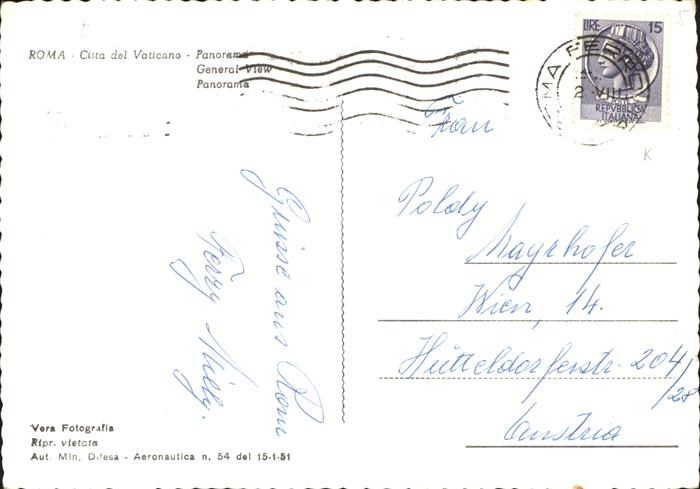 ROMA - Citta del Vaticano - Panorama
General View
Panorama
LIRE 15
POSTE
REPVBBLICA
ITALIANA
ROMA FERROVIA
2 VIII
K
Frau
Poldy
Mayrhofer
Wien, 14.
Hütteldorferstr. 204/28
Austria
Grüsse aus Rom
Ferry Milly.
Vera Fotografia
Ripr. vietata
Aut. Min. Difesa - Aeronautica n. 54 del 15-1-51